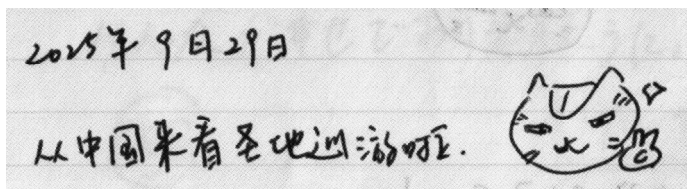 2025年9月29日
从中国来看圣地巡游哐.